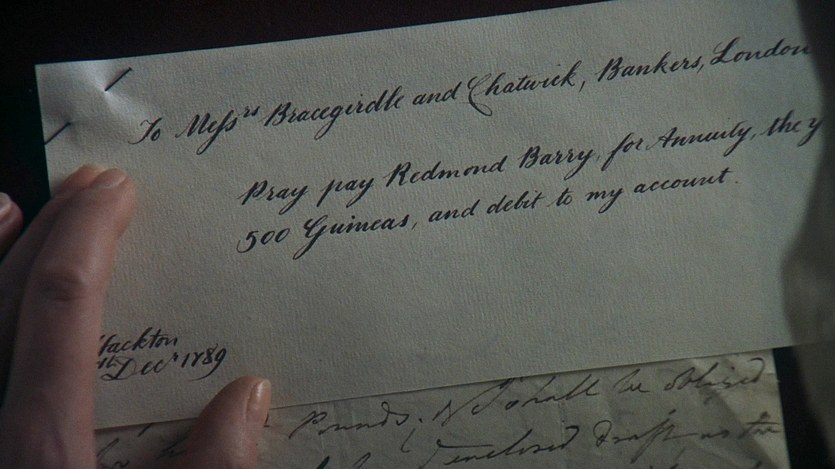 To Messrs Bracegirdle and Chatwick, Bankers, London
Pray pay Redmond Barry, for Annuity, the y
500 Guineas, and debit to my account.
Hackton
th Decr 1789
Pounds; & I shall be obliged
enclosed draft as the